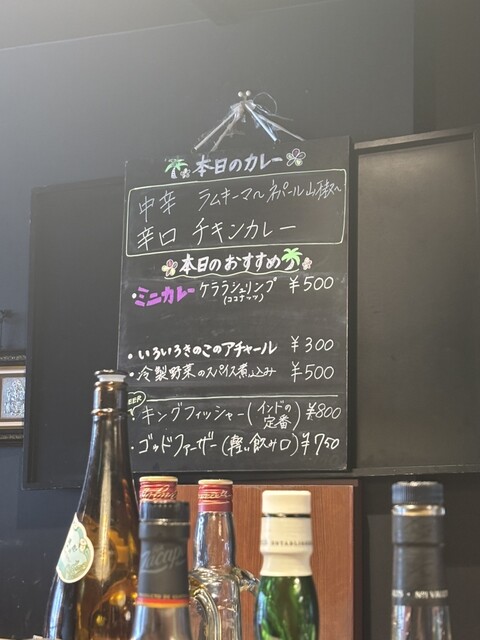 本日のカレー
中辛 ラムキーマ〜ネパール山椒〜
辛口 チキンカレー
本日のおすすめ
・ミニカレー ケララシュリンプ ¥500
(ココナッツ)
・いろいろきのこのアチャール ¥300
・冷製野菜のスパイス煮込み ¥500
BEER
・キングフィッシャー(インドの定番) ¥800
・ゴッドファーザー(軽い飲み口) ¥750
ESTABLISHED